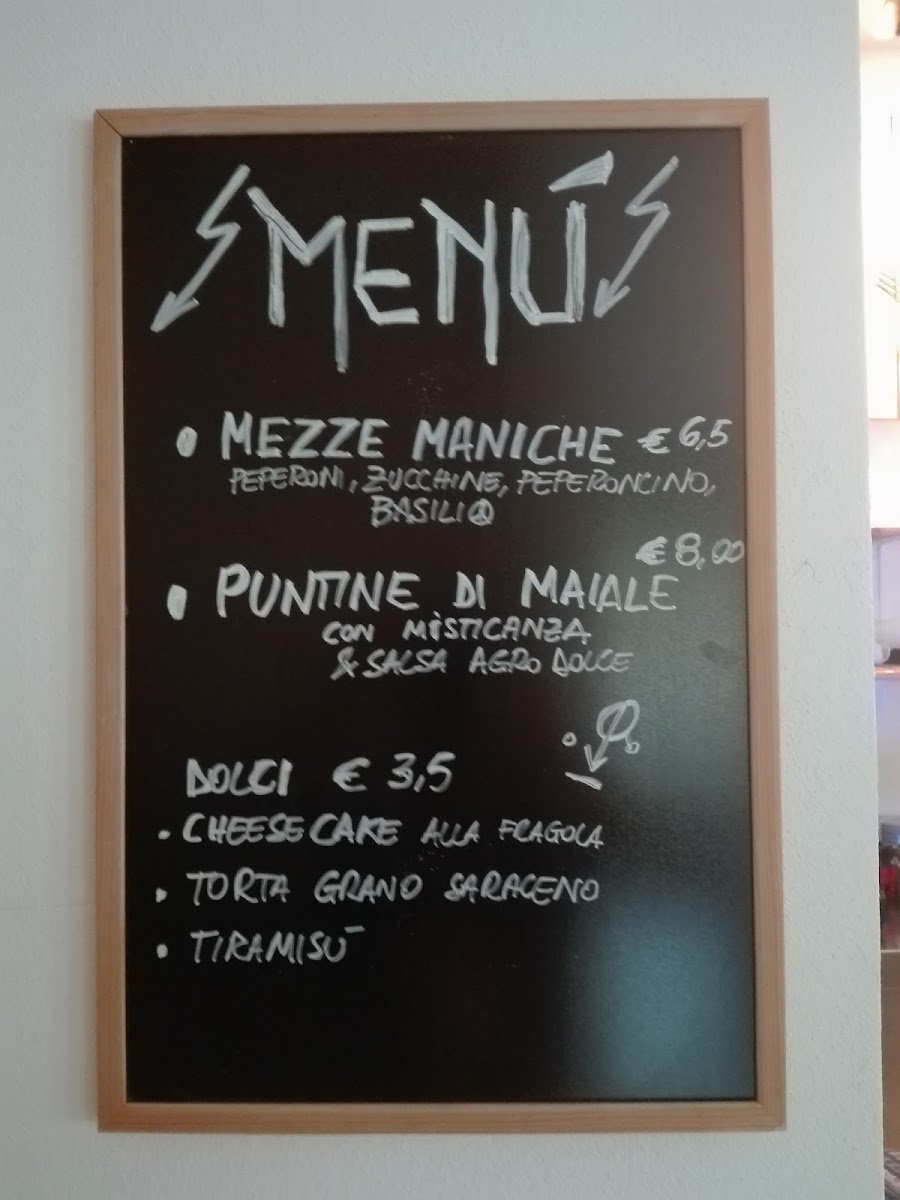 MENÚ
• MEZZE MANICHE € 6,5
PEPERONI, ZUCCHINE, PEPERONCINO,
BASILIO
€ 8,00
• PUNTINE DI MAIALE
CON MISTICANZA
& SALSA AGRO DOLCE
DOLCI € 3,5
• CHEESE CAKE ALLA FRAGOLA
• TORTA GRANO SARACENO
• TIRAMISÚ